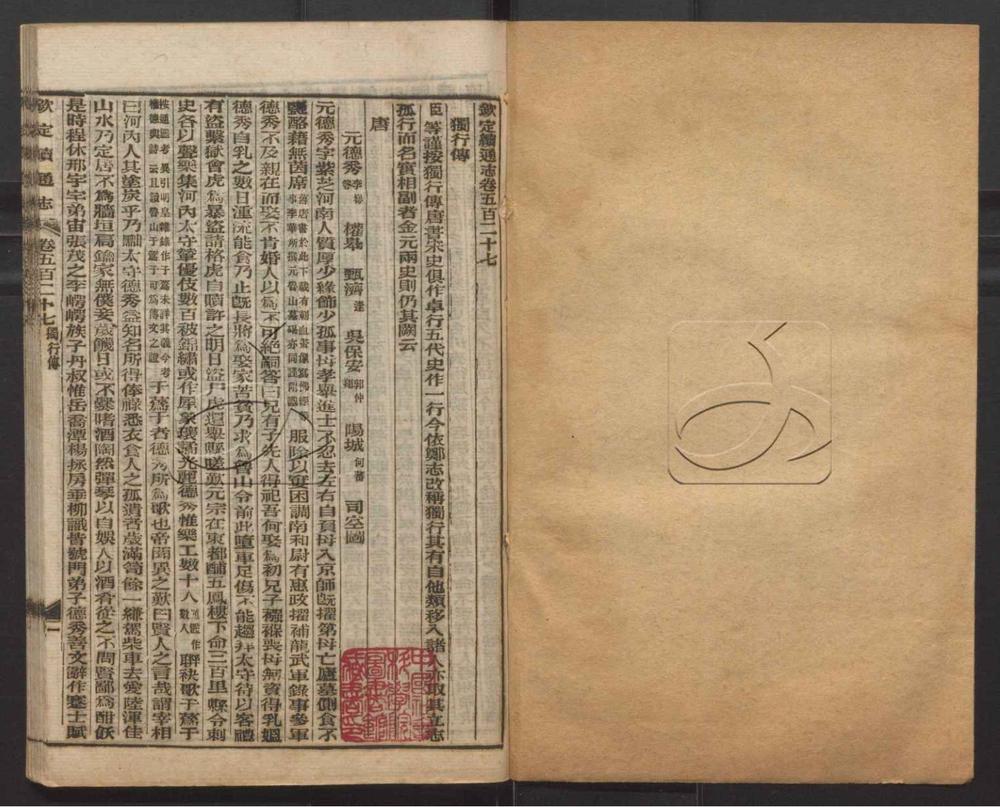 欽定續通志卷五百二十七
獨行傳
臣等謹按獨行傳唐書宋史俱作卓行五代史作一行今依鄭志改稱獨行其有自他類移入諸人亦取其立志
孤行而名實相副者金元兩史則仍其闕云
唐
元德秀 李 權臯 甄濟 逢 吳保安 郭仲翔 陽城 何蕃 司空圖
元德秀字紫芝河南人質厚少緣飾少孤事母孝舉進士不忍去左右自負母入京師旣擢第母亡廬墓側食不
鹽酪藉無茵席 服除以窶困調南和尉有惠政擢補龍武軍錄事參軍
德秀不及親在而娶不肯婚人以爲不可絕嗣答曰兄有子先人得祀吾何娶爲初兄子襁褓喪母無資得乳媼
德秀自乳之數日湩流能食乃止旣長將爲娶家苦貧乃求爲魯山令前此墮車足傷不能趨拜太守待以客禮
有盜繫獄會虎爲暴盜請格虎自贖許之明日盜尸虎還舉縣嗟歎元宗在東都酺五鳳樓下命三百里縣令刺
史各以聲樂集河內太守輦優伎數百被錦繡或作犀象瓌譎光麗德秀惟樂工數十人 聯袂歌于蔿于
于蔿于者德秀所爲歌也帝聞異之歎曰賢人之言哉謂宰相
曰河內人其塗炭乎乃黜太守德秀益知名所得俸祿悉衣食人之孤遺者歲滿笥餘一縑駕柴車去愛陸渾佳
山水乃定居不爲牆垣扃鑰家無僕妾歲饑日或不爨嗜酒陶然彈琴以自娛人以酒肴從之不問賢鄙爲酣飫
是時程休邢宇宇弟宙張茂之李崿崿族子丹叔惟岳喬潭楊拯房垂柳識皆號門弟子德秀善文辭作蹇士賦
欽定續通志 卷五百二十七 獨行傳 一